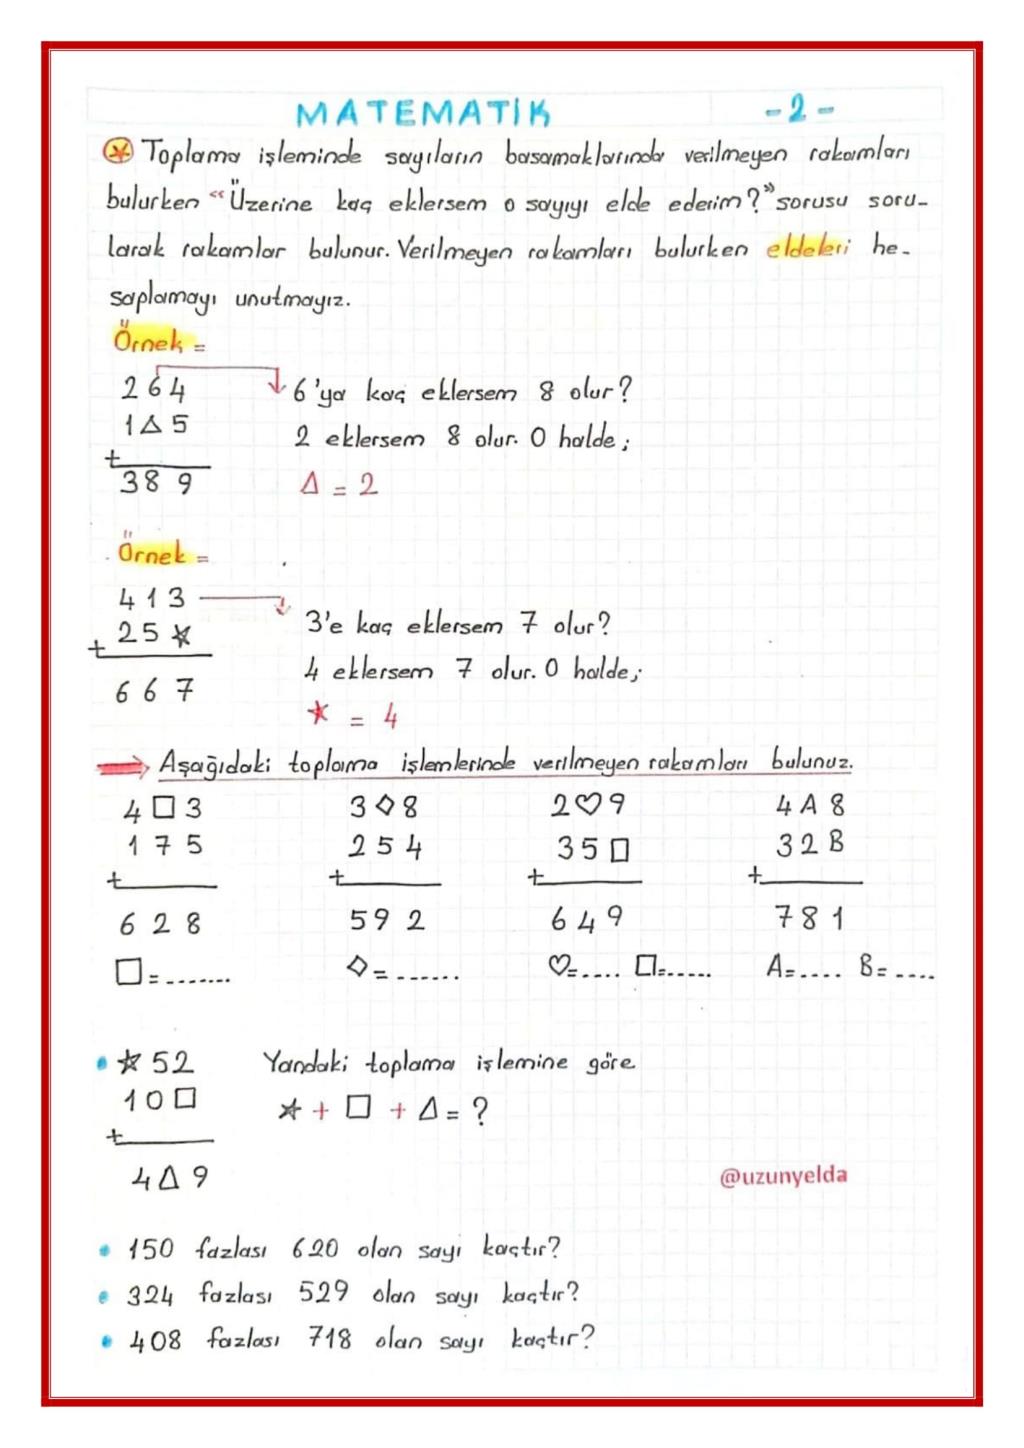 MATEMATİK -2-
Toplama işleminde sayıların basamaklarında verilmeyen rakamları
bulurken "Üzerine kaç eklersem o sayıyı elde ederim?" sorusu soru-
larak rakamlar bulunur. Verilmeyen rakamları bulurken eldeleri he-
saplamayı unutmayız.
Örnek =
264 6'ya kaç eklersem 8 olur?
1△5 2 eklersem 8 olur. O halde;
+
389 △ = 2
Örnek =
413 3'e kaç eklersem 7 olur?
+ 25★
4 eklersem 7 olur. O halde;
667
★ = 4
Aşağıdaki toplama işlemlerinde verilmeyen rakamları bulunuz.
4□3 3◇8 2♡9 4A8
175 254 35□ 32B
+ + + +
628 592 649 781
□=....... ◇=...... ♡=.... □=..... A=.... B=....
• ★52 Yandaki toplama işlemine göre
10□ ★ + □ + △ = ?
+
4△9 @uzunyelda
• 150 fazlası 620 olan sayı kaçtır?
• 324 fazlası 529 olan sayı kaçtır?
• 408 fazlası 718 olan sayı kaçtır?